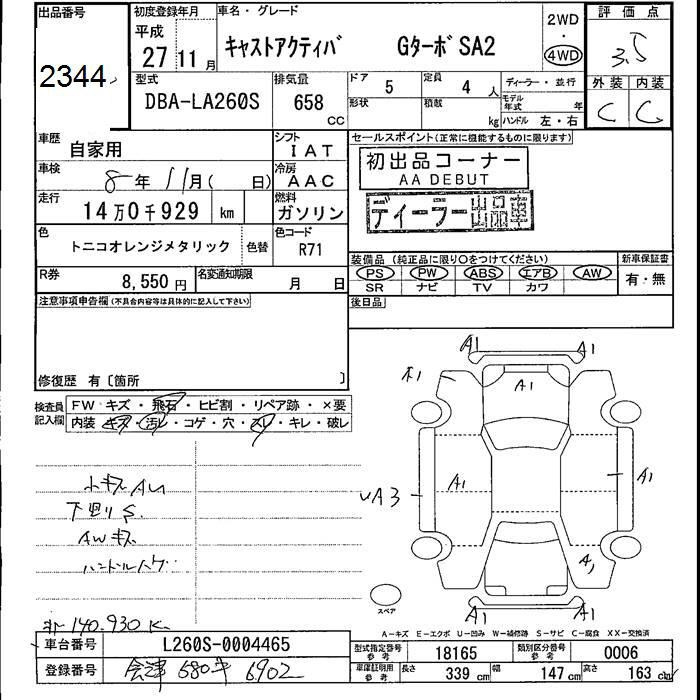 出品番号 初度登録年月 車名・グレード 評価点
2344 平成 27 11月 キャストアクティバ GターボSA2 2WD・4WD 3.5
型式 排気量 ドア 5 定員 4人 ディーラー・並行 外装 内装
DBA-LA260S 658 CC 形状 積載 kg モデル年式 年 ハンドル 左・右 C C
車歴 自家用 シフト IAT セールスポイント(正常に機能するものに限ります)
車検 8年 11月( 日) 冷房 AAC 初出品コーナー
AA DEBUT
走行 14万0千929 km 燃料 ガソリン ディーラー出品車
色 トニコオレンジメタリック 色替 色コード R71
装備品(純正品に限り○をつけてください) 新車保証書
PS PW ABS エアB AW 有・無
SR ナビ TV カワ
R券 8,550円 名変通知期限 月 日
後日品
注意事項申告欄(不具合内容等は具体的に記入して下さい)
修復歴 有〔箇所 〕
検査員記入欄 FW キズ・飛石・ヒビ割・リペア跡・×要
内装 キズ・汚レ・コゲ・穴・スレ・キレ・破レ
A1 A1
A1 A1
A1 A1
UA3
A1
A1 A1
小キズAU
下回りS.
AWキズ
ハンドルハゲ
スペア
140.930K
A-キズ E-エクボ U-凹み W-補修跡 S-サビ C-腐食 XX-交換済
車台番号 L260S-0004465 型式指定番号 参考 18165 類別区分番号 参考 0006
登録番号 会津 580 キ 6902 車庫証明用 参考 長さ 339cm 幅 147cm 高さ 163cm